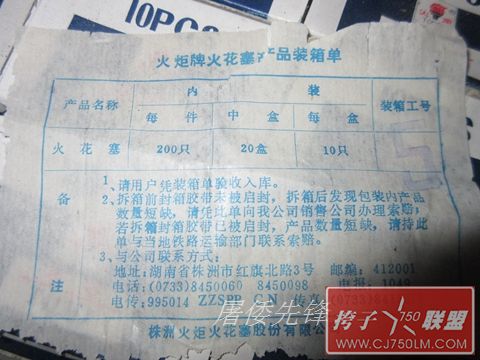 10PCS
火炬牌火花塞产品装箱单
产品名称 内 装 装箱工号
每 件 中 盒 每 盒
火 花 塞 200只 20盒 10只
备 注
1、请用户凭装箱单验收入库。
2、拆箱前封箱胶带未被启封，拆箱后发现包装内产品
数量短缺，请凭此单向我公司销售公司办理索赔；
若拆箱封箱胶带已被启封，产品数量短缺，请持此
单与当地铁路运输部门联系索赔。
3、与公司联系方式：
地址：湖南省株洲市红旗北路3号 邮编：412001
电话：(0733)8450060 8450098 电报：1049
电传：995014 ZZSPP CN 传真：(0733)
株洲火炬火花塞股份有限公
屠倭先锋
挎子750联盟
www.CJ750LM.com